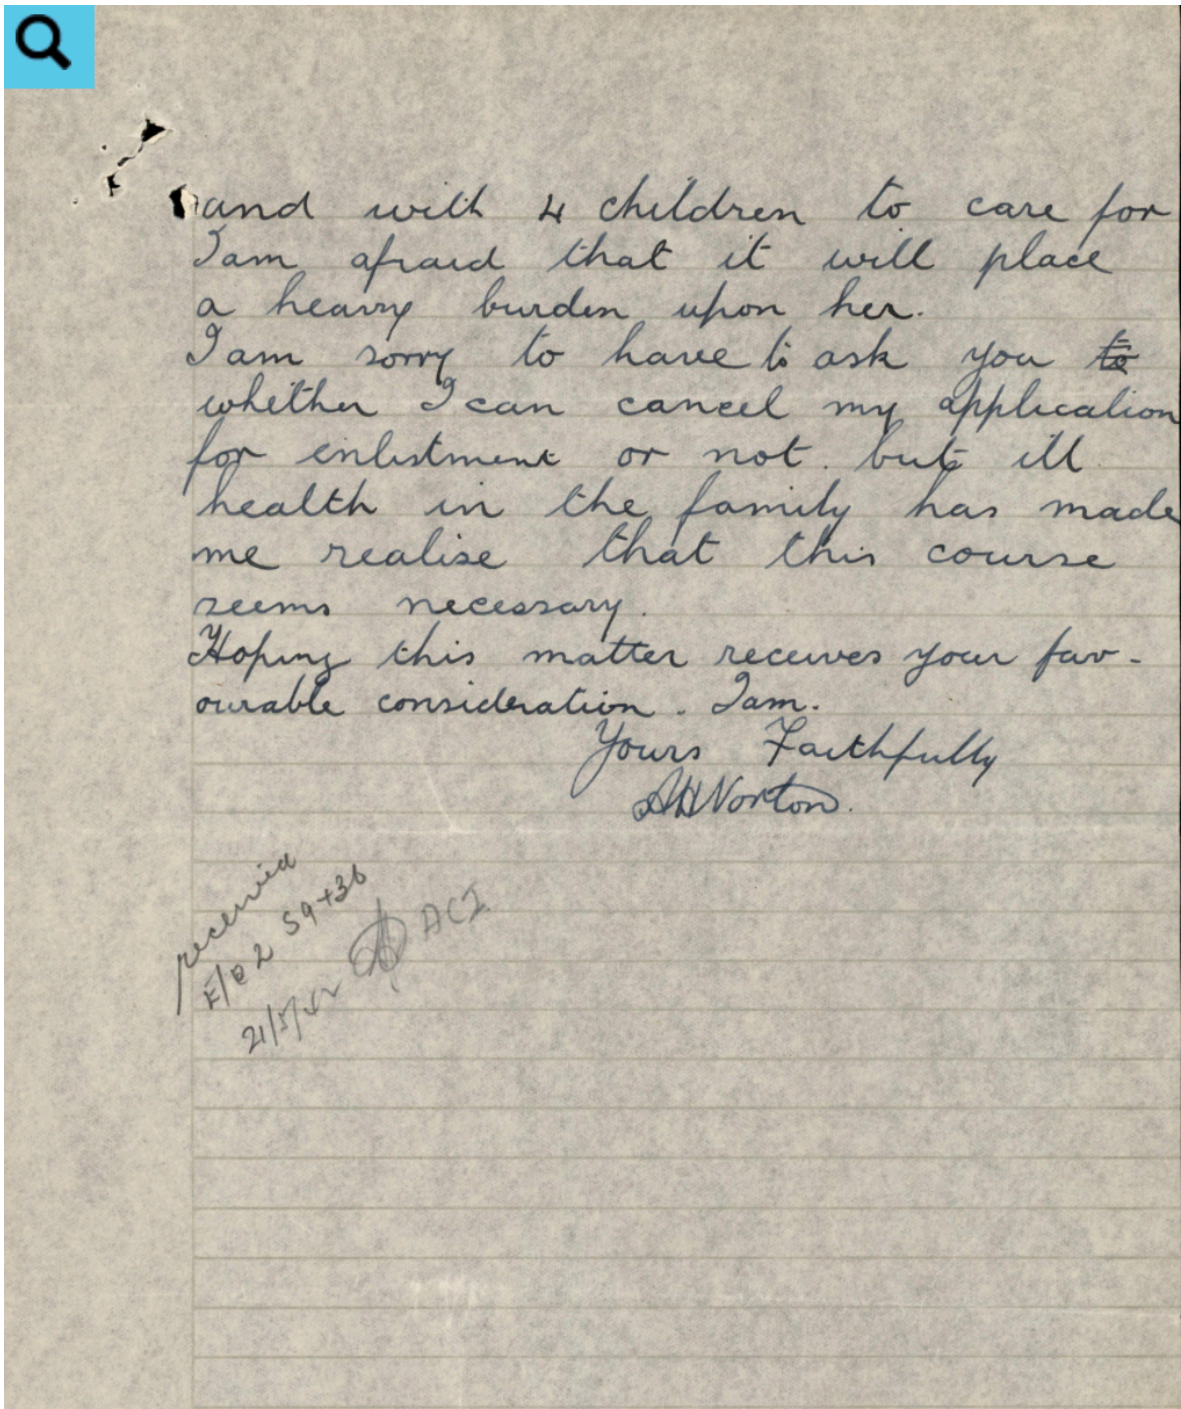 and with 4 children to care for
I am afraid that it will place
a heavy burden upon her.
I am sorry to have to ask you to
whether I can cancel my application
for enlistment or not. but ill
health in the family has made
me realise that this course
seems necessary.
Hoping this matter receives your fav-
ourable consideration. I am.
Yours Faithfully
AH Norton.
received
59+36
21/5/42 ACI